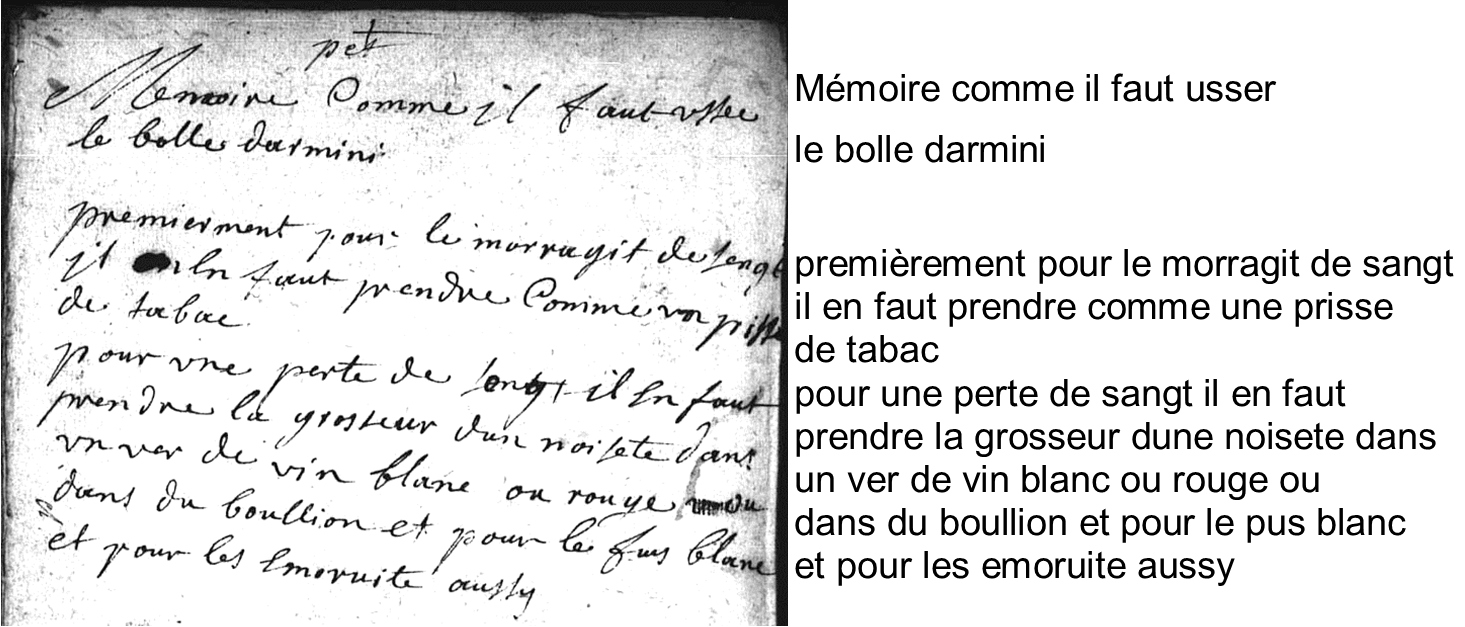 pet
Memoire Comme jl faut usser
le bolle darmini
premierment pour le morragit de sengt
jl en faut prendre Comme un prisse
de tabac
pour vne perte de sengt il En faut
prendre la grosseur dun noisete dans
vn ver de vin blanc ou rouge ou
dans du boullion et pour le fus blanc
et pour les Emoruite aussy
Mémoire comme il faut usser
le bolle darmini
premièrement pour le morragit de sangt
il en faut prendre comme une prisse
de tabac
pour une perte de sangt il en faut
prendre la grosseur dune noisete dans
un ver de vin blanc ou rouge ou
dans du boullion et pour le pus blanc
et pour les emoruite aussy